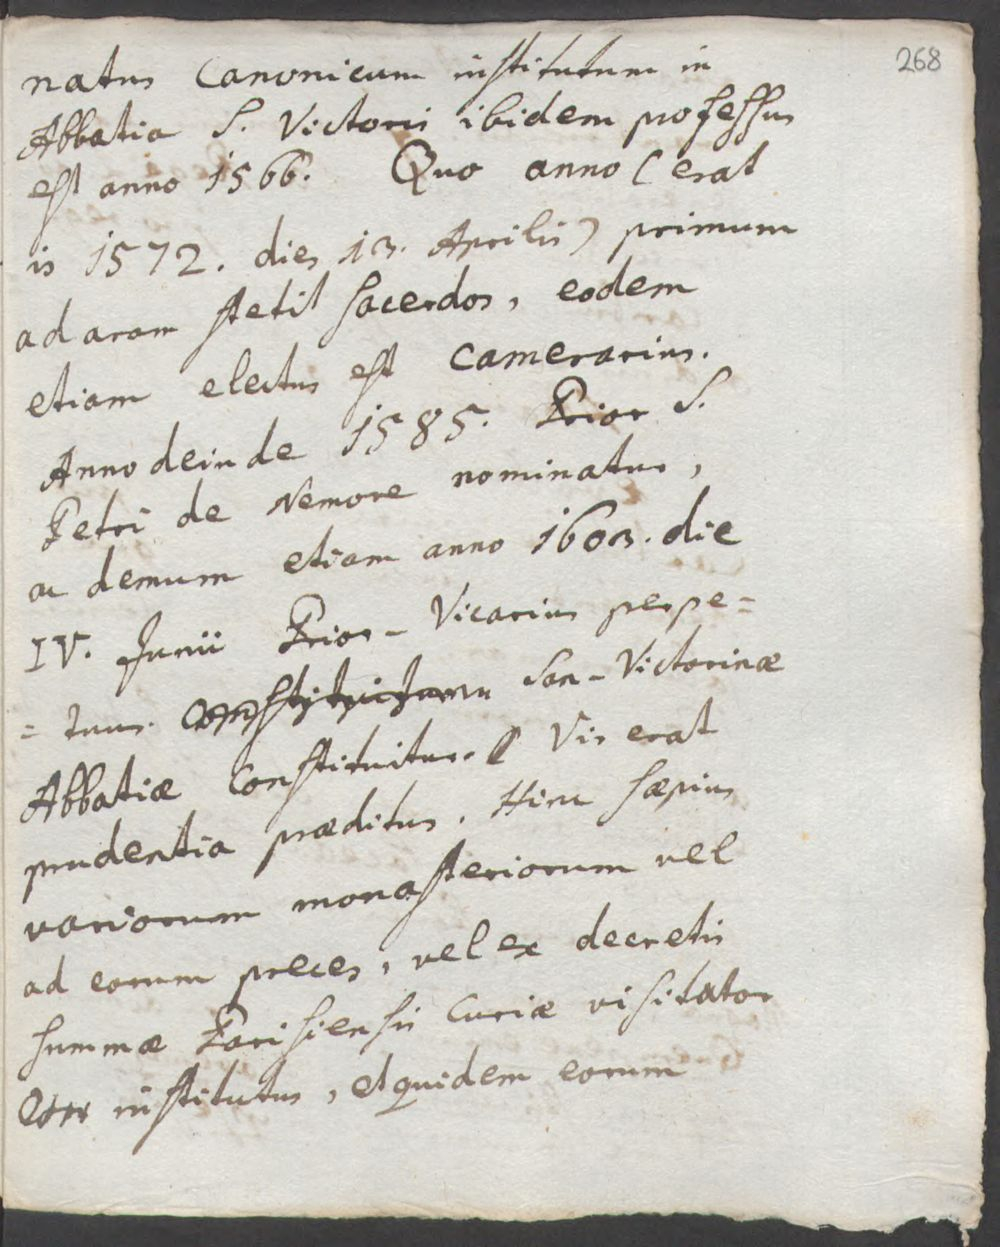 268
natus Canonicum institutum in
Abbatia S. Victoris ibidem professus
est anno 1566. Quo anno (erat
is 1572. dies 13. Aprilis) primum
ad aram stetit sacerdos, eodem
etiam electus est Camerarius.
Anno deinde 1585. Prior S.
Petri de Nemore nominatus,
ac demum etiam anno 1603. die
IV. Junii Prior-Vicarius perpe=
=tuus. San-Victorinæ
Abbatiæ Constituitur. Vir erat
prudentia præditus. Hinc sæpius
variorum monasteriorum vel
ad eorum preces, vel ex decretis
summæ Parisiensis Curiæ visitator
institutus, et quidem eorum